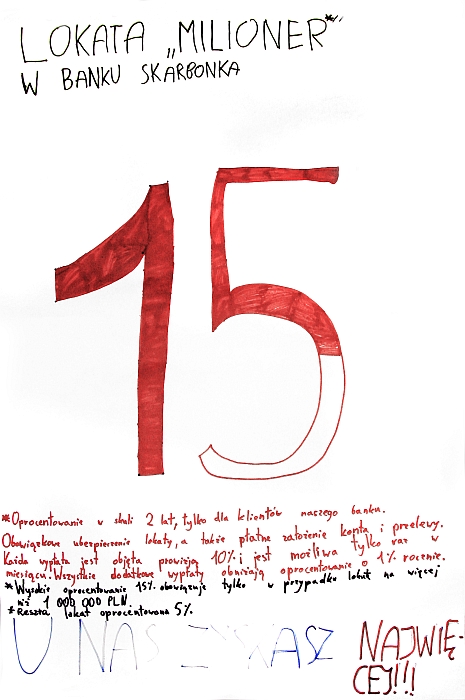 LOKATA „MILIONER"*
W BANKU SKARBONKA
15
*Oprocentowanie w skali 2 lat, tylko dla klientów naszego banku.
Obowiązkowe ubezpieczenie lokaty, a także płatne założenie konta i przelewy.
Każda wypłata jest objęta prowizją 10% i jest możliwa tylko raz w
miesiącu. Wszystkie dodatkowe wypłaty obniżają oprocentowanie o 1% rocznie.
*Wysokie oprocentowanie 15% obowiązuje tylko w przypadku lokat na więcej
niż 1 000 000 PLN.
*Reszta lokat oprocentowana 5%.
U NAS ZYSKASZ NAJWIĘ-
CEJ!!!